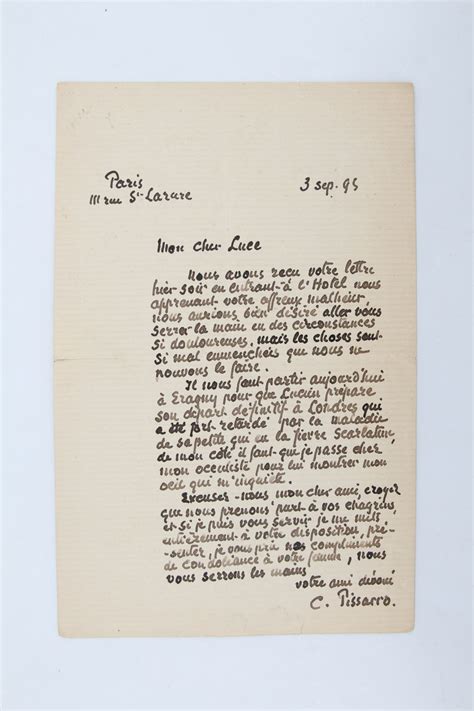 Paris
111 rue St Lazare
3 sep. 95
Mon cher Luce
nous avons reçu votre lettre
hier soir en entrant à l'Hotel nous
apprenant votre affreux malheur,
nous aurions bien désiré aller vous
serrer la main en des circonstances
si douloureuses, mais les choses sont
si mal emmenchées que nous ne
pouvons le faire.
Il nous faut partir aujourd'hui
à Eragny pour que Lucien prépare
son départ définitif à Londres qui
a été fort retardé par la maladie
de sa petite qui eu la fièvre Scarlatine,
de mon côté il faut que je passe chez
mon occuliste pour lui montrer mon
oeil qui m'inquiète.
Excusez-nous mon cher ami, croyez
que nous prenons part à vos chagrins,
et si je puis vous servir je me mets
entièrement à votre disposition, pré-
senter, je vous prie nos compliments
de condoléance à votre femme, nous
vous serrons les mains
votre ami dévoué
C. Pissarro.